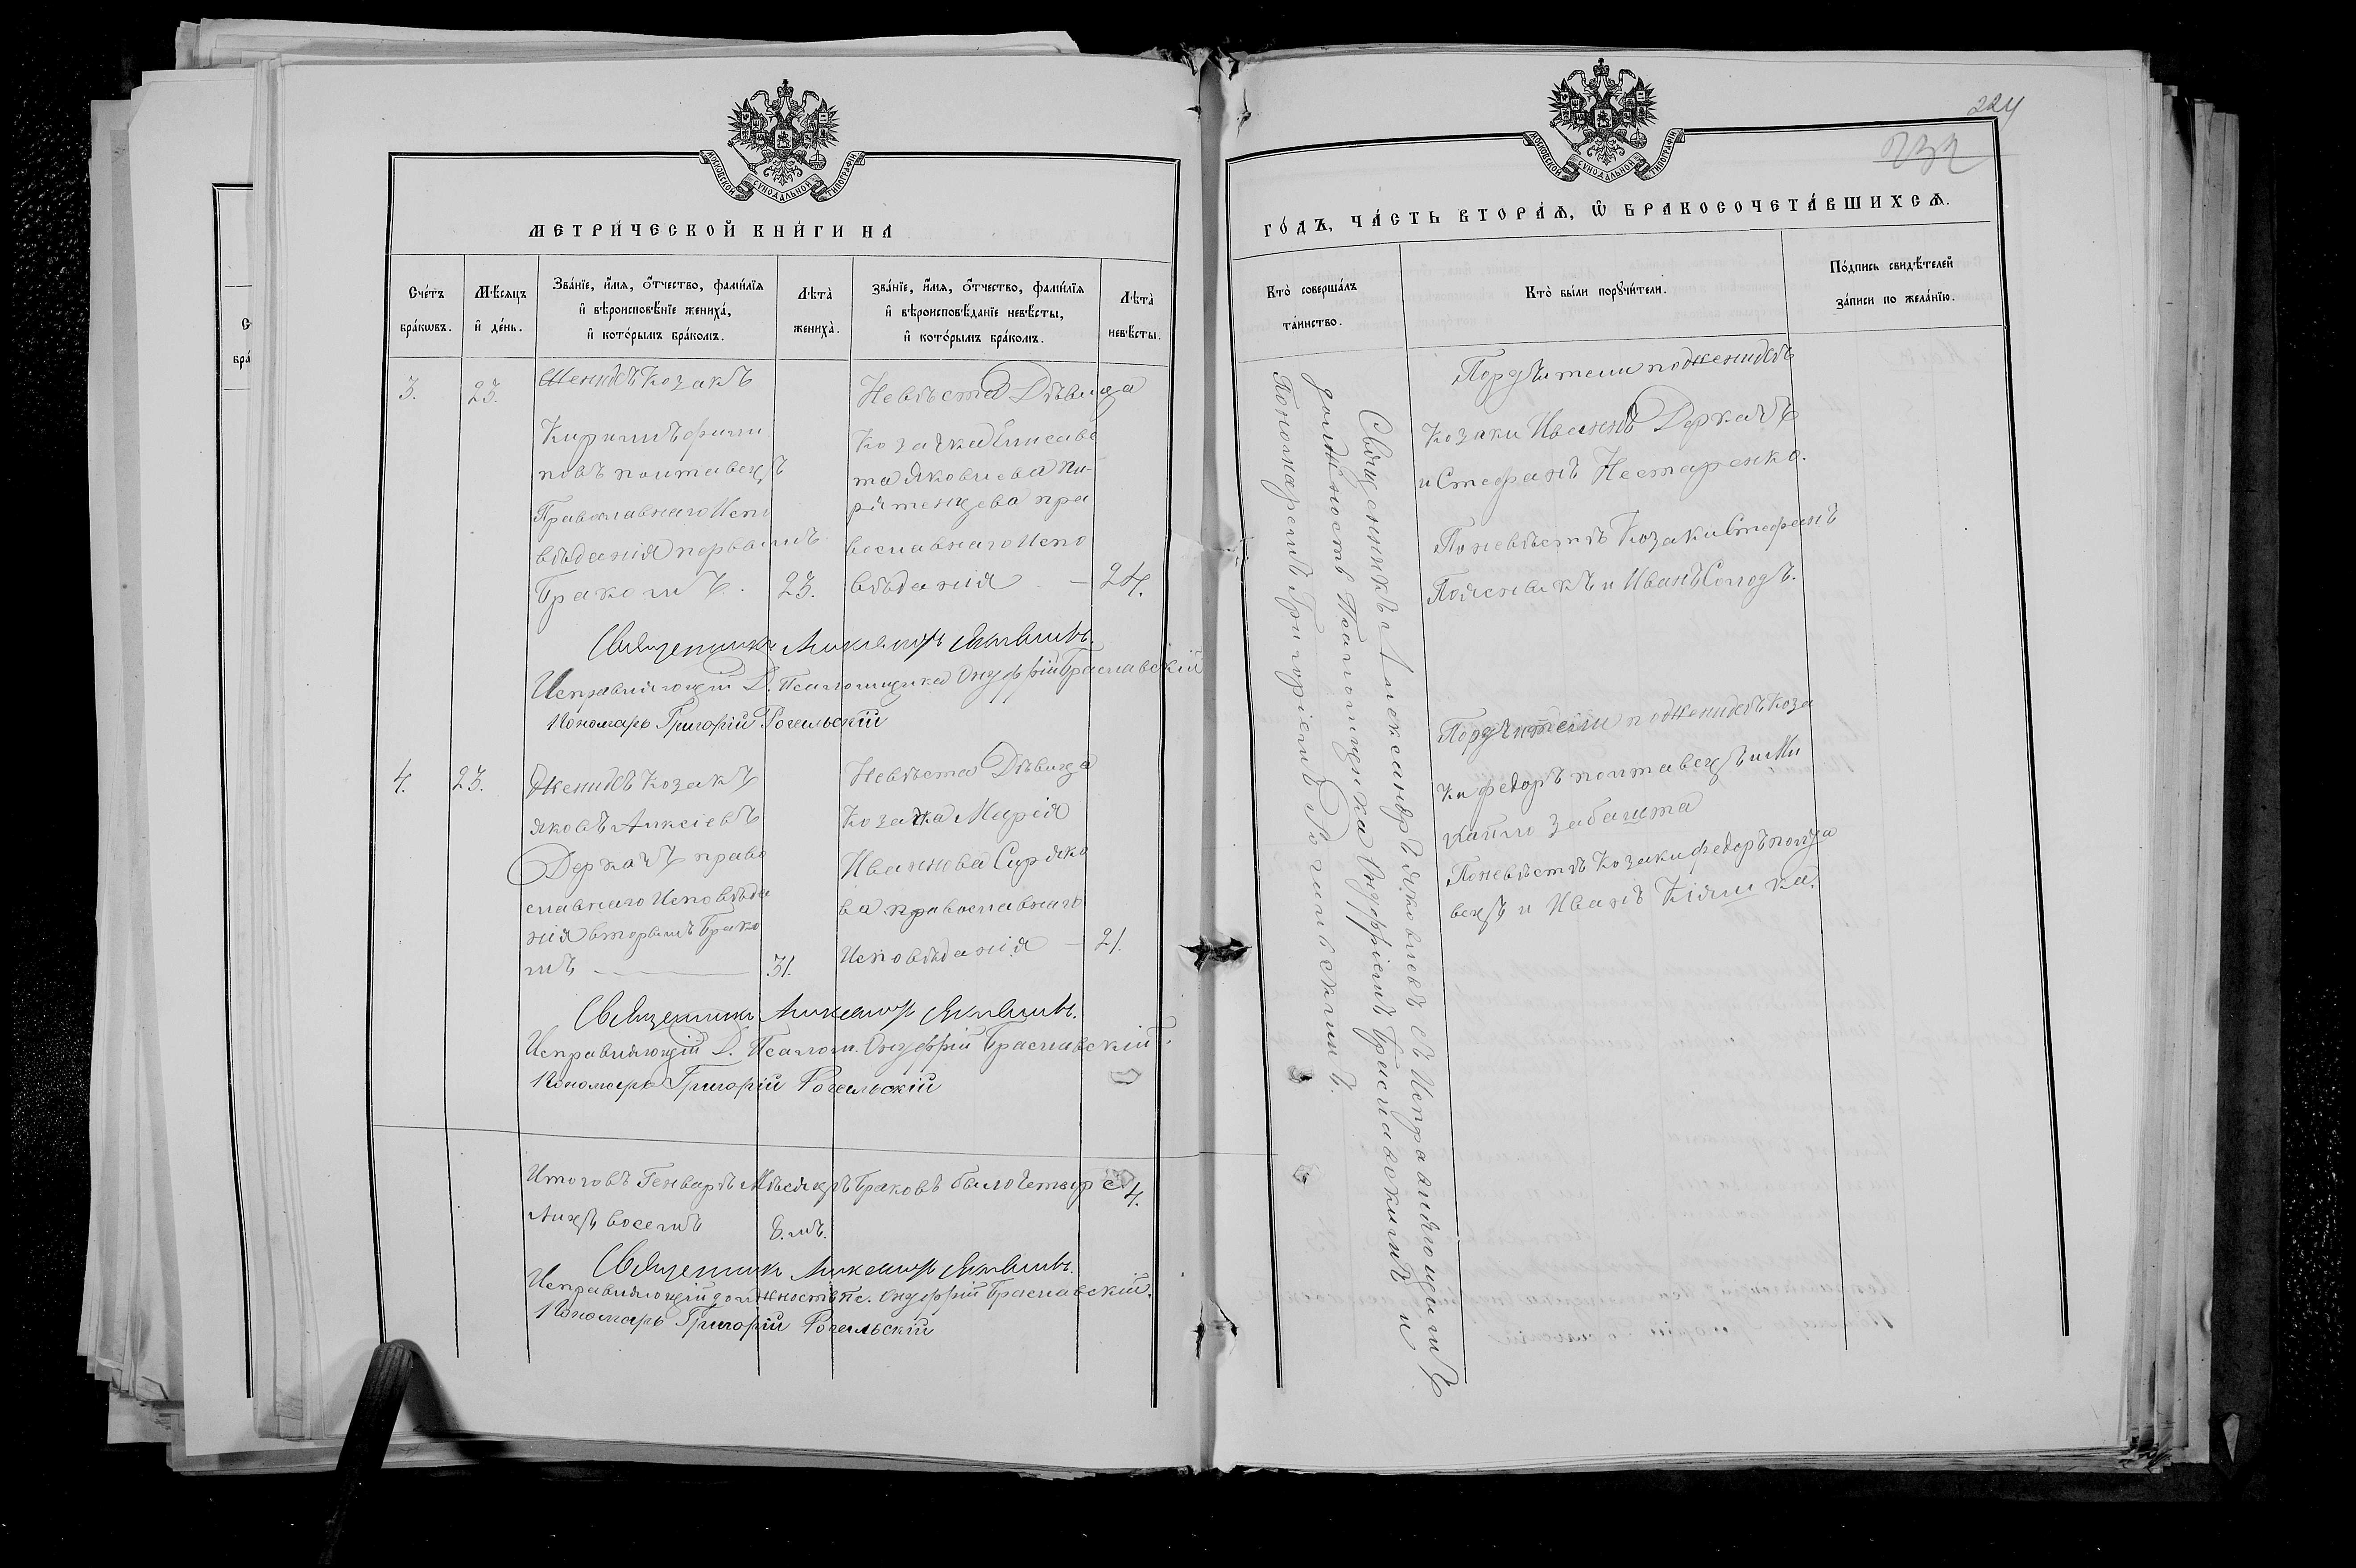 224
232
МОСКОВСКОЙ СУНОДАЛЬНОЙ ТИПОГРАФІИ
МЕТРИ́ЧЕСКОЙ КНИ́ГИ НА
Сче́тъ бра́кѡвъ.
Мѣ́сяцъ и҆ де́нь.
Зва́нїе, и҆́мѧ, ѻ҆́тчество, фами́лїѧ и҆ вѣроисповѣ́нїе жениха̀, и҆ кото́рымъ бра́комъ.
Лѣта̀ жениха̀.
Зва́нїе, и҆́мѧ, ѻ҆́тчество, фами́лїѧ и҆ вѣроисповѣ́данїе невѣ́сты, и҆ кото́рымъ бра́комъ.
Лѣта̀ невѣ́сты.
3.
23.
Женихъ Козакъ
Кирилъ Филип
повъ полтавецъ
Православнаго Испо
вѣданія первымъ
бракомъ.
23.
Невѣста Дѣвица
Козачка Елисаве
та Яковлева
пра
вославнаго Испо
вѣданія —
24.
Священникъ Александръ Яковлевъ.
Исправляющій Д. Псаломщика Онуфрій Браславскій
Пономарь Григорій Рогальскій
4.
23.
Женихъ Козакъ
Яковъ Алксіевъ
Деркачъ право
славнаго Исповѣда
нія вторымъ Брако
мъ —
31.
Невѣста Дѣвица
Козачка Марія
Иванова Сиряко
ва православнаго
Исповѣданія —
21.
Священникъ Александръ Яковлевъ.
Исправляющій Д. Псалом. Онуфрій Браславскій.
Пономарь Григорій Рогальскій
Итого въ Генварѣ Мѣсяцѣ Браковъ было четыре 4.
Лицъ восемъ 8.мъ.
Священникъ Александръ Яковлевъ.
Исправляющій должность Пс. Онуфрій Браславскій.
Пономарь Григорій Рогальскій
МОСКОВСКОЙ СУНОДАЛЬНОЙ ТИПОГРАФІИ
ГО́ДЪ, ЧА́СТЬ ВТОРА́Ѧ, Ѡ҆ БРАКОСОЧЕТА́ВШИХСѦ.
Кто̀ соверша́лъ та́инство.
Кто̀ бы́ли порꙋчи́тели.
По́дпись свидѣ́телей за́писи по жела́нїю.
Священникъ Александръ Яковлевъ съ Исправляющимъ
должность Псаломщика Онуфріемъ Браславскимъ и
Пономаремъ Григоріемъ Рогальскимъ.
Поручители по женихѣ
Козаки Иванъ Деркачъ
и Стефанъ Нестаренко.
По невѣстѣ Козаки Стефанъ
Пояснакъ и Иванъ Солодъ.
Поручители по женихѣ Коза
ки Федоръ полтавецъ и Ми
хайло Забашта
По невѣстѣ Козаки Федоръ полта
вецъ и Иванъ Кіяшка.